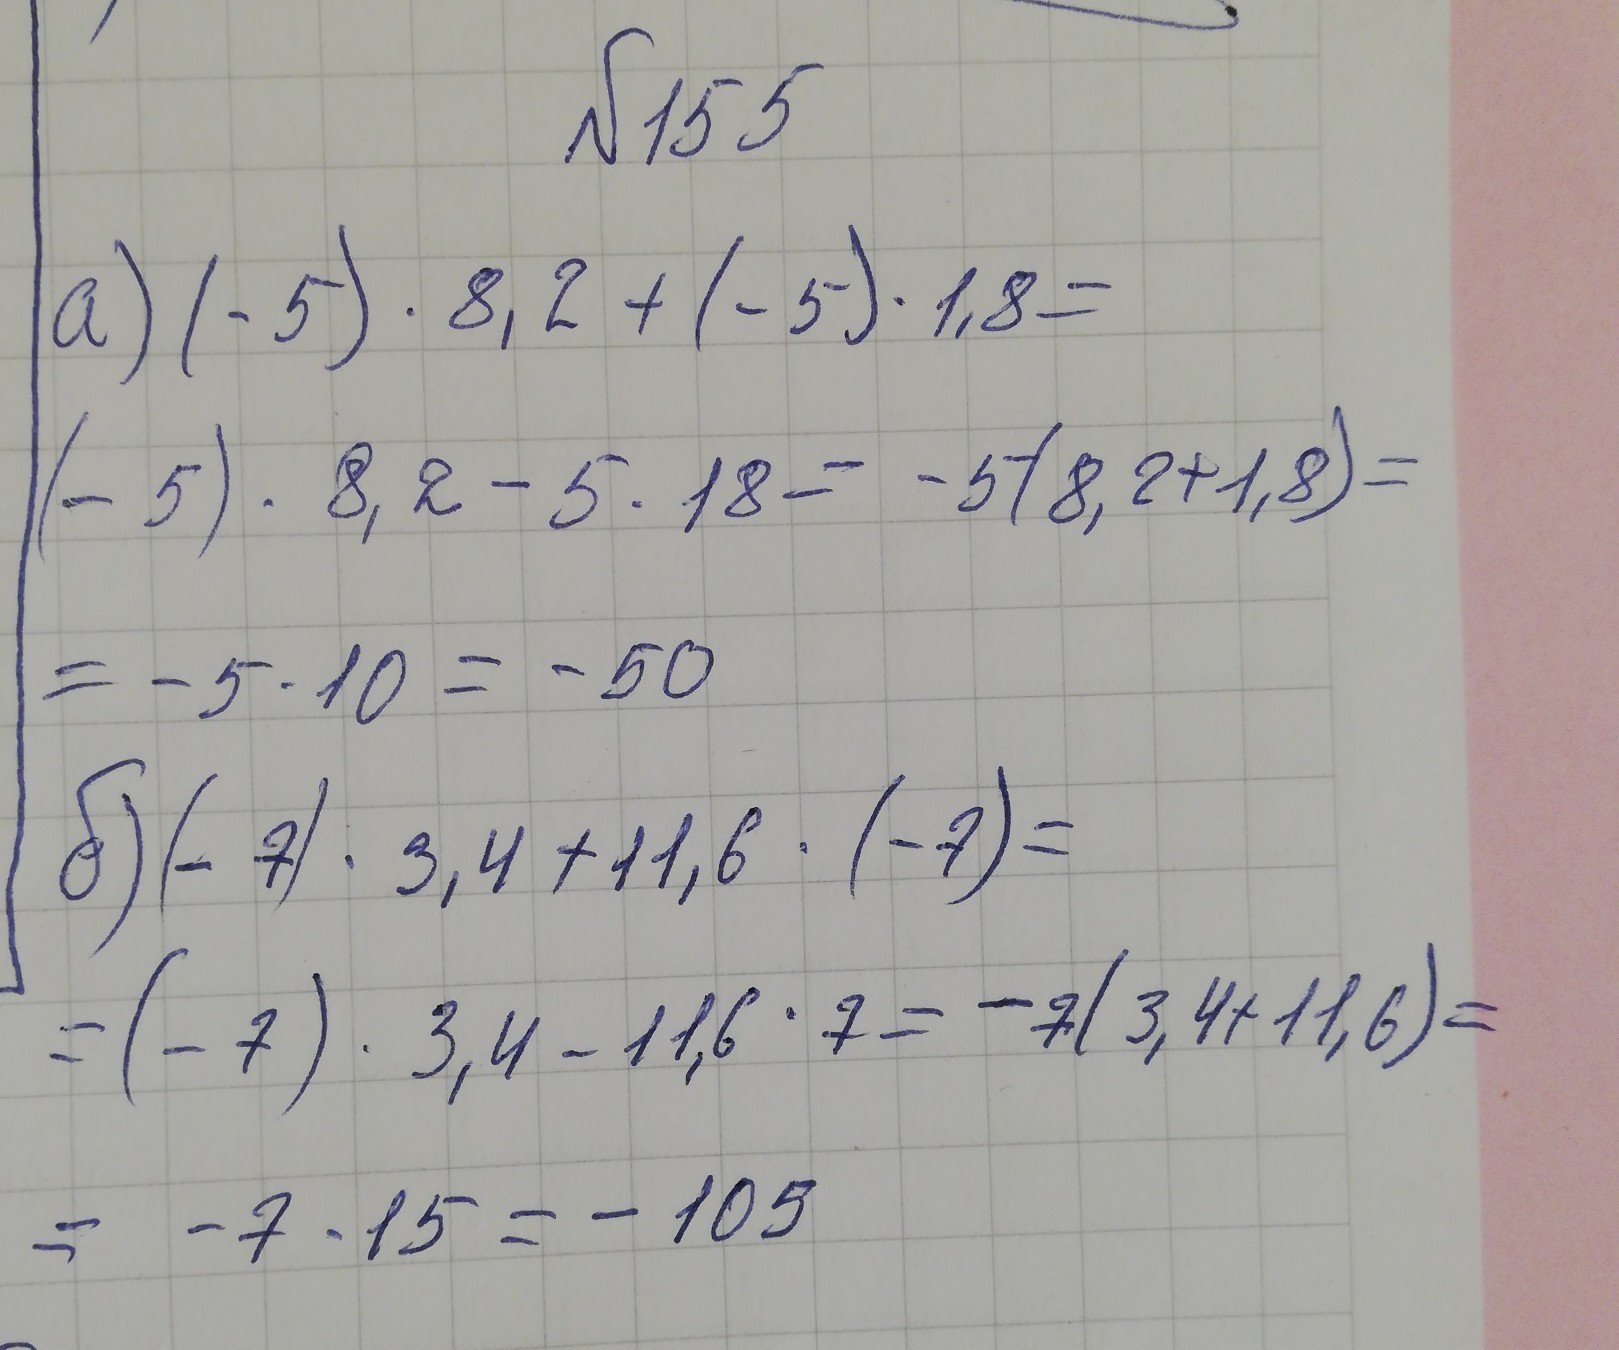 №155
а) (-5) · 8,2 + (-5) · 1,8 =
(-5) · 8,2 - 5 · 18 = -5(8,2+1,8) =
= -5 · 10 = -50
б) (-7) · 3,4 + 11,6 · (-7) =
= (-7) · 3,4 - 11,6 · 7 = -7(3,4+11,6) =
= -7 · 15 = -105